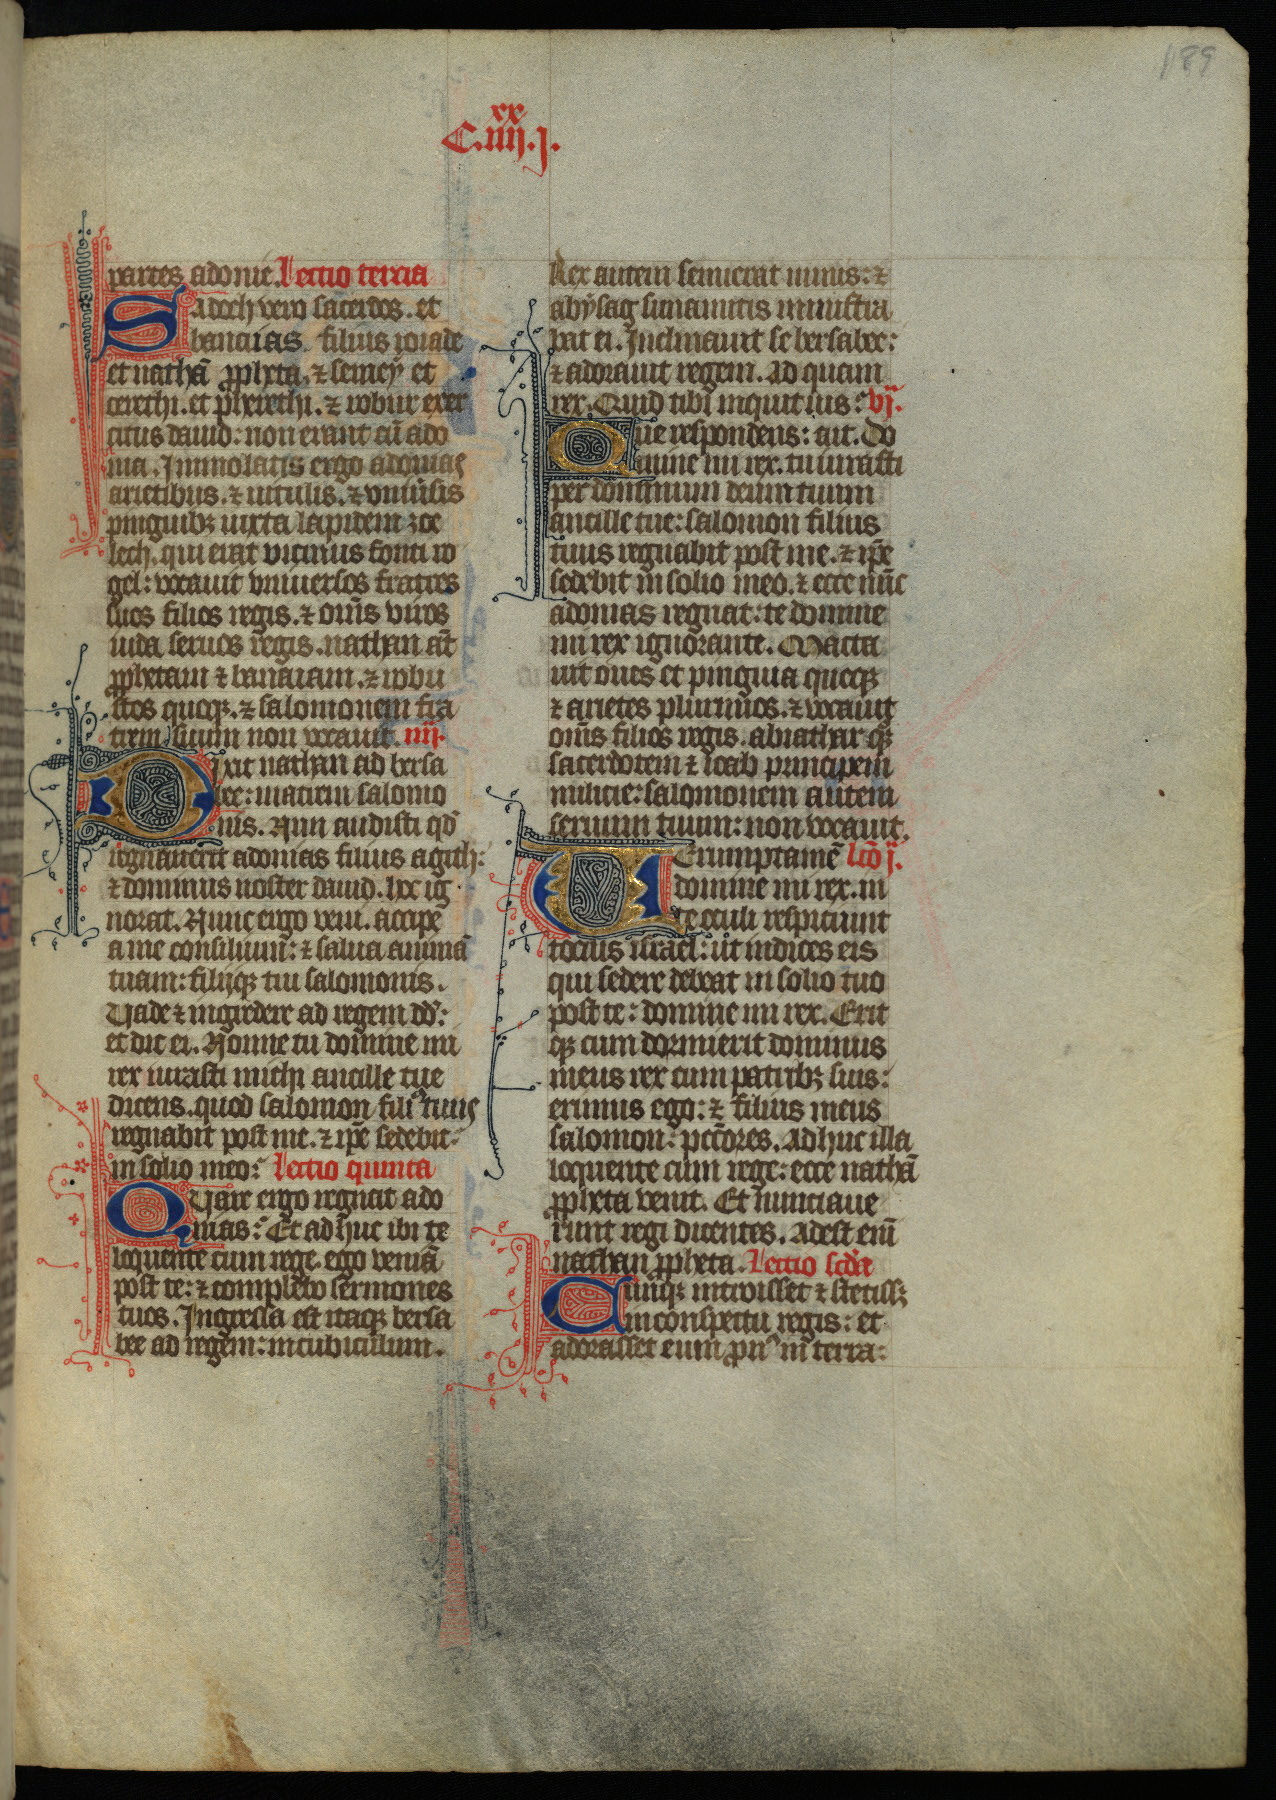 189
xx
C.iiij.j.
partes adonie. Lectio tercia
Sadoch vero sacerdos. et
banaias filius ioiade
et nathā ꝓpheta. ⁊ semeÿ et
cerethi. et pherethi. ⁊ robur exer
citus dauid: non erant cū ado
nia. Immolatis ergo adonias
arietibus. ⁊ uitulis. ⁊ vniūsis
pinguibꝫ iuxta lapidem zoe
lech. qui erat vicinus fonti ro
gel: vocauit vniuersos fratres
suos filios regis. ⁊ om̄s viros
iuda seruos regis. nathan aūt
ꝓphetam ⁊ banaiam. ⁊ robu
stos quoqꝫ. ⁊ salomonem fra
trem suum non vocauit. iiij.
Dixit nathan ad bersa
bee: matrem salomo
nis. Num audisti qđ
regnauerit adonias filius agith:
⁊ dominus noster dauid. hoc ig
norat. Nunc ergo veni. accipe
a me consilium: ⁊ salua animā
tuam: filijqꝫ tui salomonis.
Vade ⁊ ingredere ad regem dd̄:
et dic ei. Nonne tu domine mi
rex iurasti michi ancille tue
dicens. quod salomon filiꝰ tuus
regnabit post me. ⁊ ip̄e sedebit
in solio meo: Lectio quinta
Quare ergo regnat ado
nias: Et adhuc ibi te
loquente cum rege. ego veniā
post te: ⁊ complebo sermones
tuos. Ingressa est itaqꝫ bersa
bee ad regem: in cubiculum.
Rex autem senuerat nimis: ⁊
abÿsag sunamitis ministra
bat ei. Inclinauit se bersabee:
⁊ adorauit regem. Ad quam
rex. Quid tibi inquit uis: vj.
Que respondens: ait. Do
mine mi rex. tu iurasti
per dominum deum tuum
ancille tue: salomon filius
tuus regnabit post me. ⁊ ip̄e
sedebit in solio meo. ⁊ ecce nūc
adonias regnat: te domine
mi rex ignorante. Macta
uit oues et pinguia queqꝫ
⁊ arietes plurimos. ⁊ vocauit
om̄s filios regis. abiathar qꝫ
sacerdotem ⁊ ioab principem
milicie: salomonem autem
seruum tuum: non vocauit.
Verumptamē lcō j.
domine mi rex. in
te oculi respiciunt
tocius israel: ut indices eis
qui sedere debeat in solio tuo
post te: domine mi rex. Erit
qꝫ cum dormierit dominus
meus rex cum patribꝫ suis:
erimus ego: ⁊ filius meus
salomon: pcc̄ores. Adhuc illa
loquente cum rege: ecce nathā
ꝓpheta venit. Et nunciaue
runt regi dicentes. Adest eni
nathan ꝓpheta. Lectio scd̄a
Cunqꝫ introisset ⁊ stetissꝫ
in conspectu regis: et
adorasset eum ꝓnꝰ in terra: